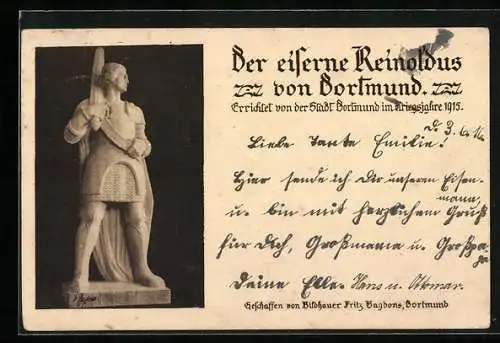 Der eiserne Reinoldus
von Dortmund.
Errichtet von der Stadt Dortmund im Kriegsjahre 1915.
d. 3.6.16
Liebe Tante Emilie!
Hier sende ich Dir unseren Eisen-
mann,
u. bin mit herzlichem Gruß
für Dich, Großmama u. Großpa-
pa
Deine Elle. Hans u. Otmar.
Geschaffen von Bildhauer Fritz Bagdons, Dortmund